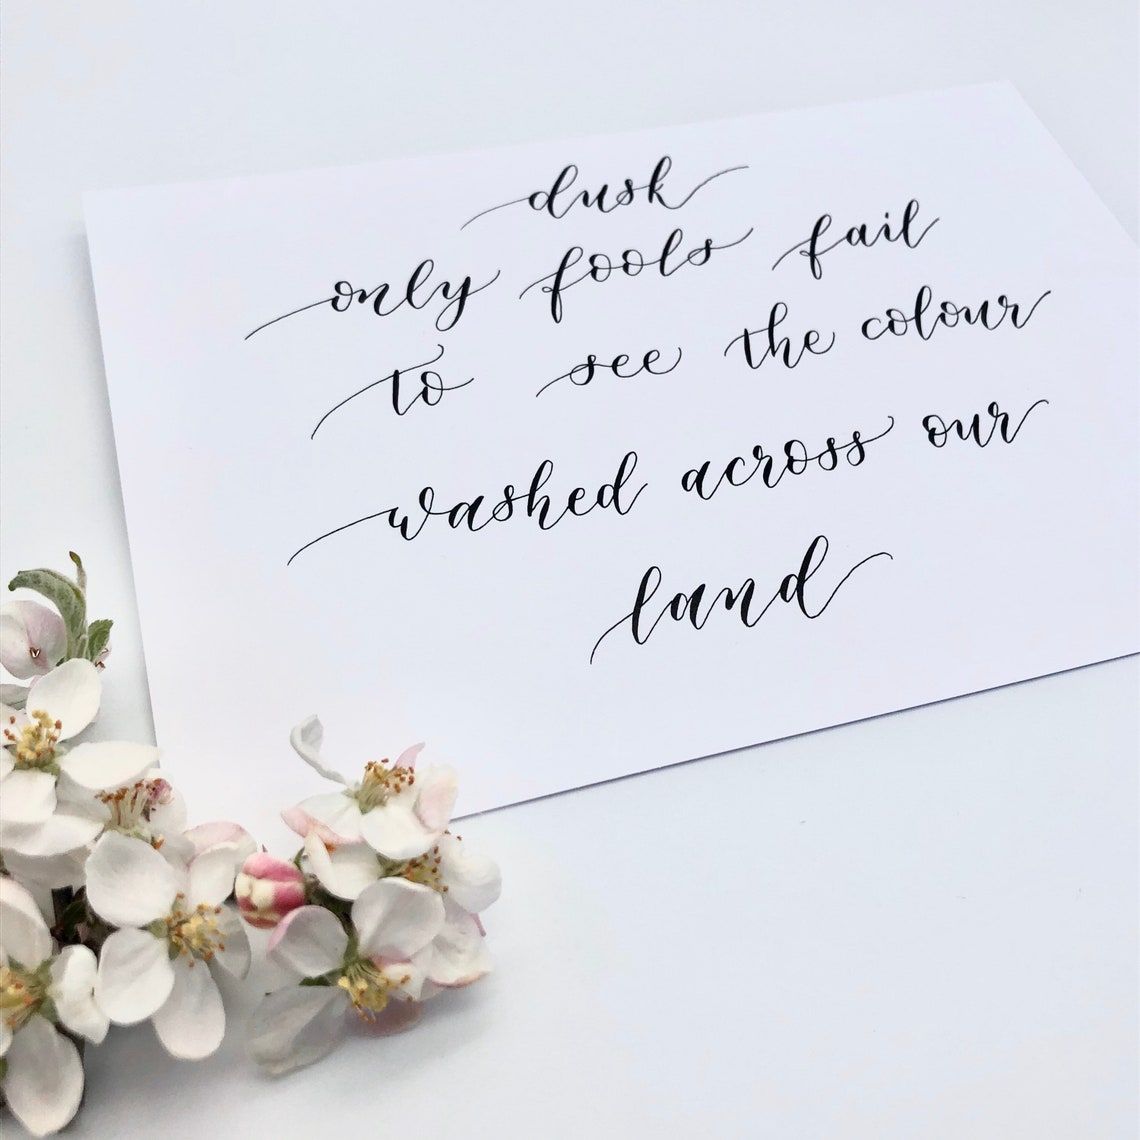 dusk
only fools fail
to see the colour
washed across our
land